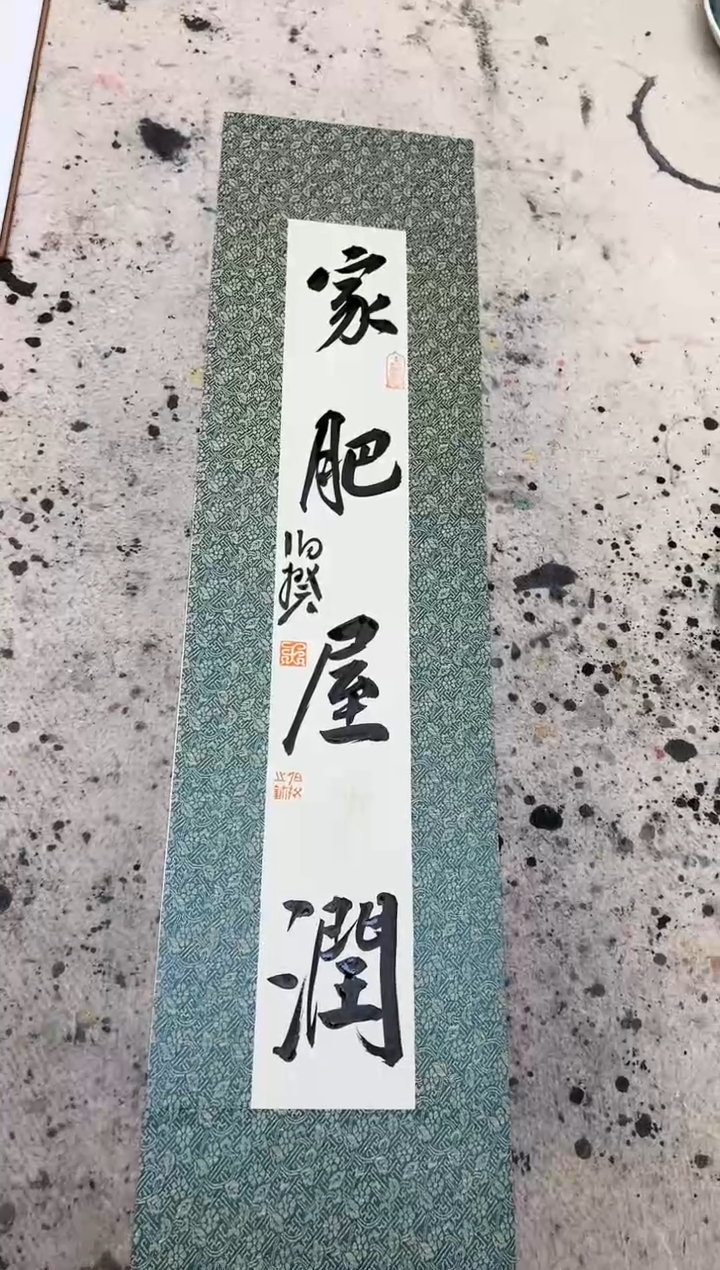 家肥屋潤